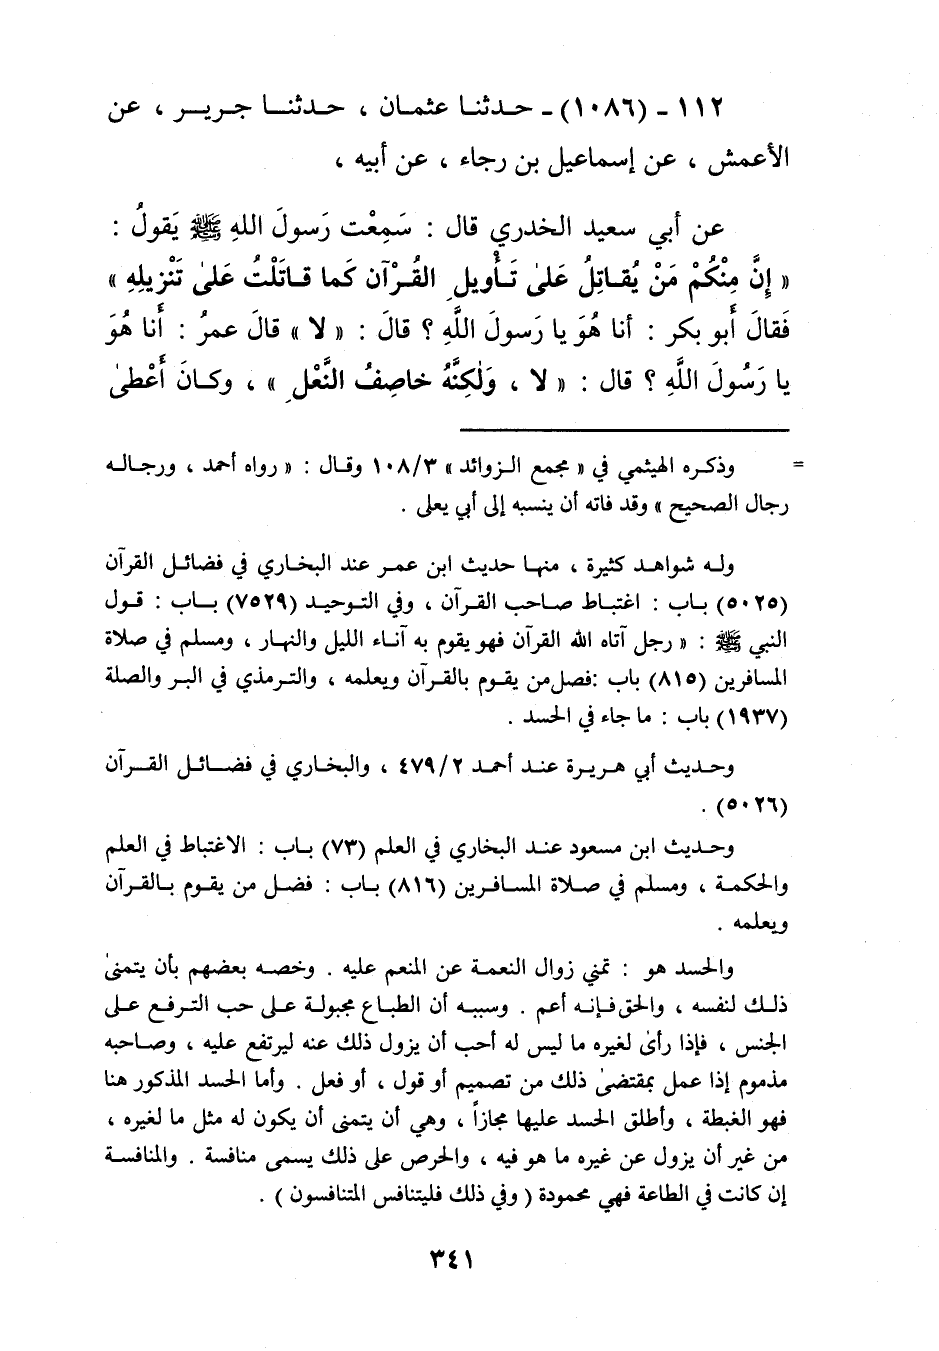 ١١٢ - (١٠٨٦) - حدثنا عثمان ، حدثنا جرير ، عن
الأعمش ، عن إسماعيل بن رجاء ، عن أبيه ،
عن أبي سعيد الخدري قال : سَمِعْت رَسولَ اللهِ ﷺ يَقولُ :
« إِنَّ مِنْكُمْ مَنْ يُقاتِلُ عَلىٰ تَأْويلِ القُرْآن كَما قاتَلْتُ عَلىٰ تَنْزيلِهِ »
فَقالَ أَبو بكر : أنا هُوَ يا رَسولَ اللَّهِ ؟ قالَ : « لا » قالَ عمرُ : أَنا هُوَ
يا رَسُولَ اللَّهِ ؟ قال : « لا ، وَلٰكِنَّهُ خاصِفُ النَّعْلِ » ، وكانَ أَعْطىٰ
= وذكره الهيثمي في « مجمع الزوائد » ١٠٨/٣ وقال : « رواه أحمد ، ورجاله
رجال الصحيح » وقد فاته أن ينسبه إلى أبي يعلى .
وله شواهد كثيرة ، منها حديث ابن عمر عند البخاري في فضائل القرآن
(٥٠٢٥) باب : اغتباط صاحب القرآن ، وفي التوحيد (٧٥٢٩) باب : قول
النبي ﷺ : « رجل آتاه الله القرآن فهو يقوم به آناء الليل والنهار ، ومسلم في صلاة
المسافرين (٨١٥) باب :فصل من يقوم بالقرآن ويعلمه ، والترمذي في البر والصلة
(١٩٣٧) باب : ما جاء في الحسد .
وحديث أبي هريرة عند أحمد ٤٧٩/٢ ، والبخاري في فضائل القرآن
(٥٠٢٦) .
وحديث ابن مسعود عند البخاري في العلم (٧٣) باب : الاغتباط في العلم
والحكمة ، ومسلم في صلاة المسافرين (٨١٦) باب : فضل من يقوم بالقرآن
ويعلمه .
والحسد هو : تمني زوال النعمة عن المنعم عليه . وخصه بعضهم بأن يتمنىٰ
ذلك لنفسه ، والحق فإنه أعم . وسببه أن الطباع مجبولة على حب الترفع على
الجنس ، فإذا رأىٰ لغيره ما ليس له أحب أن يزول ذلك عنه ليرتفع عليه ، وصاحبه
مذموم إذا عمل بمقتضىٰ ذلك من تصميم أو قول ، أو فعل . وأما الحسد المذكور هنا
فهو الغبطة ، وأطلق الحسد عليها مجازاً ، وهي أن يتمنى أن يكون له مثل ما لغيره ،
من غير أن يزول عن غيره ما هو فيه ، والحرص على ذلك يسمى منافسة . والمنافسة
إن كانت في الطاعة فهي محمودة ( وفي ذلك فليتنافس المتنافسون ) .
٣٤١